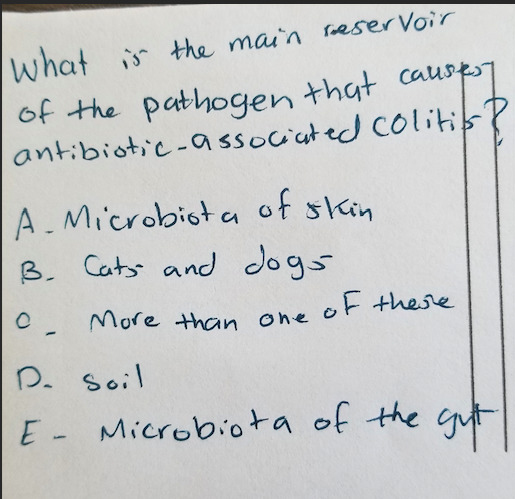 What is the main reservoir
of the pathogen that causes
antibiotic-associated colitis?
A - Microbiota of skin
B - Cats and dogs
C - More than one of these
D - Soil
E - Microbiota of the gut